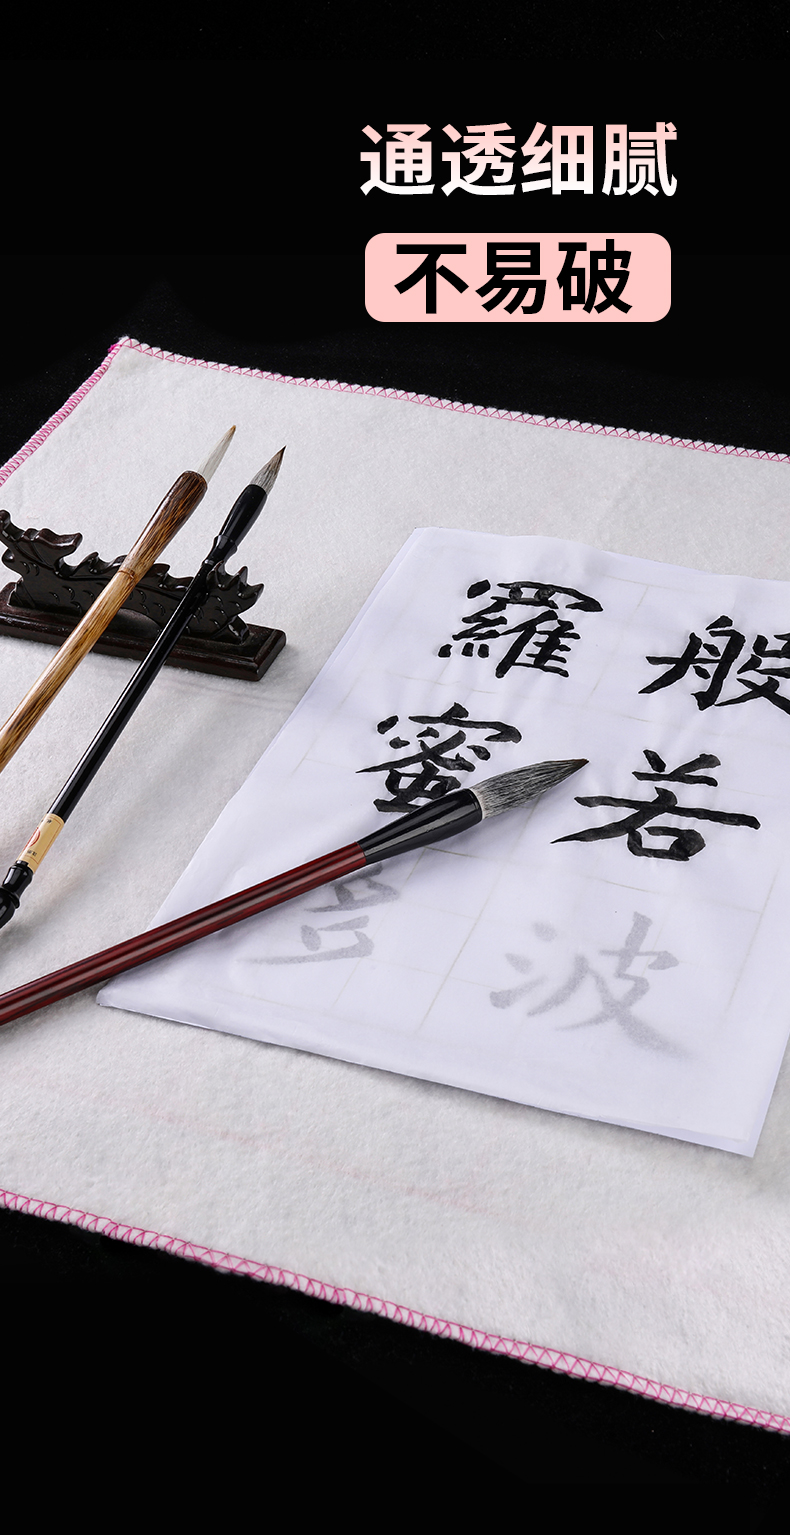 通透细腻
不易破
般若波
羅蜜多